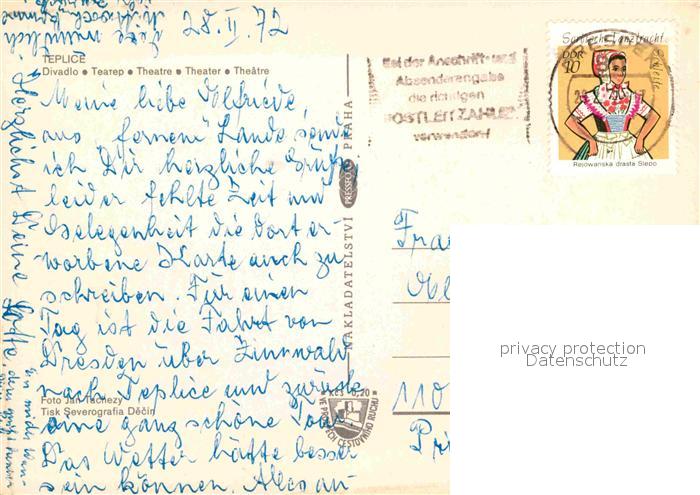 28.II.72
TEPLICE
Divadlo • Театер • Theatre • Theater • Théâtre
Meine liebe Elfriede
aus fernem Lande send
ich Dir herzliche Grüße
leider fehlte Zeit und
Gelegenheit die dort er-
worbene Karte auch zu
schreiben. Für einen
Tag ist die Fahrt von
Dresden über Zinnwald
nach Teplice und zurück
eine ganz schöne Tour.
Das Wetter hätte besser
sein können. Alles an-
Foto Jan Tachezy
Tisk Severografia Děčín
Herzlichst Deine Lotte
NAKLADATELSTVÍ PRESSFOTO PRAHA
Kčs 0,20
VE PROSPĚCH CESTOVNÍHO RUCHU
Bei der Anschrift- und
Absenderangabe
die richtigen
POSTLEITZAHLEN
verwenden!
Sorbische Tanztracht
DDR
10
Rejowanska drasta Slepo
Fra
110
privacy protection
Datenschutz